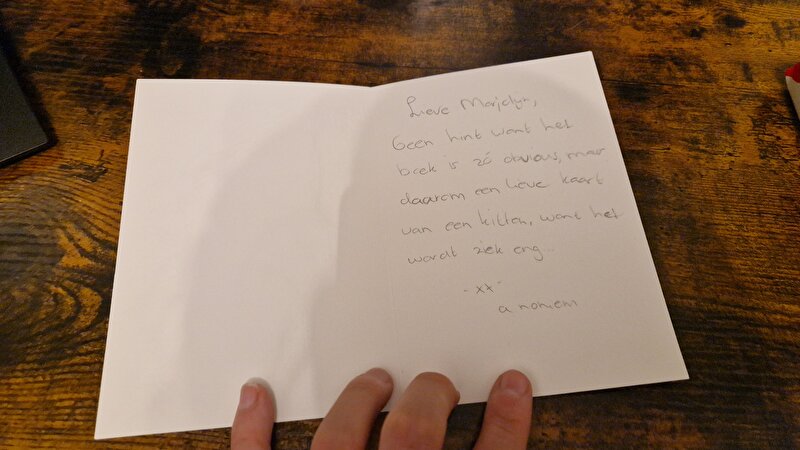 Lieve Marjolijn,
Geen hint want het
boek is zó obvious, maar
daarom een lieve kaart
van een kitten, want het
wordt ziek eng...
- xx -
anoniem